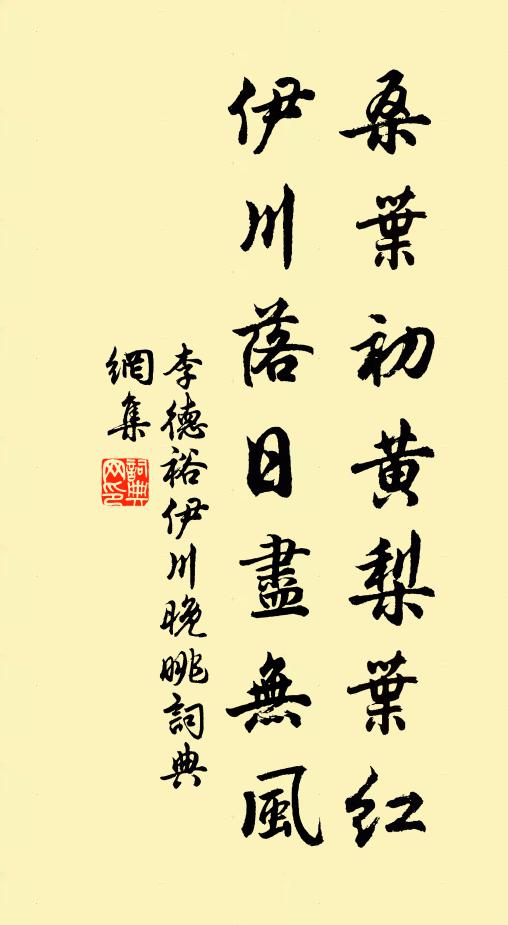 桑葉初黃梨葉紅
伊川落日盡無風
李德裕伊川晚眺詞典
網集
詞典
网印